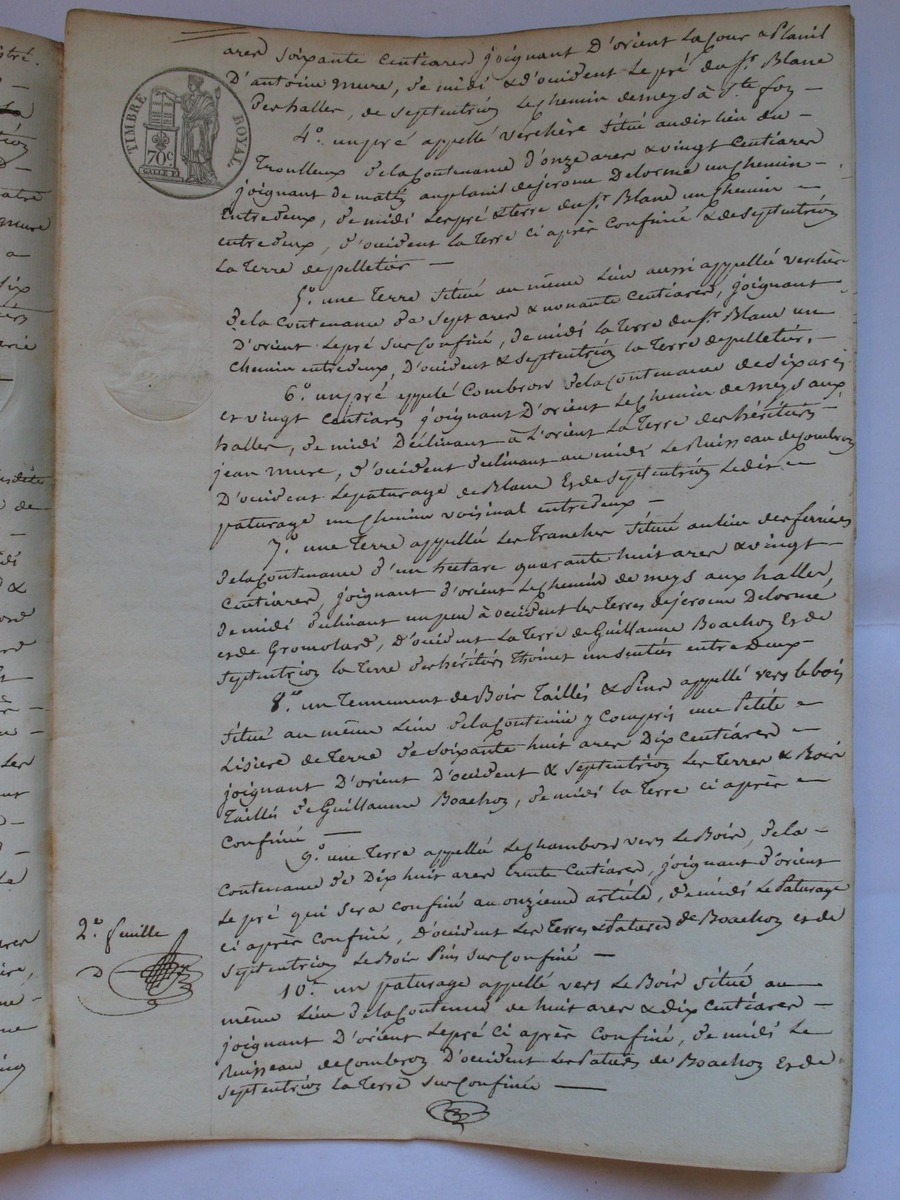 ares soixante centiares joignant D'orient La Cour & Planil
D'antoine mure, de midi & d'occident Le pré du Sr. Blanc
Des halles, de septentrion Le chemin de meys à Ste foy —
TIMBRE ROYAL
70c
4o. un pré appellé verchère situé audit lieu du —
Troulleux de la Contenance d'onze ares & vingt Centiares
joignant de matin au planil de jerome Delorme un chemin —
entredeux, de midi les pré & terre du Sr. Blanc un Chemin —
entredeux, d'occident la Terre ci après Confinée & de septentrion
La Terre de pelletier —
5o. une Terre située au même Lieu aussi appellée verchère
de la Contenance de sept ares & nonante Centiares, joignant
D'orient Le pré sur Confiné, de midi la Terre du Sr. Blanc un
Chemin entredeux, d'occident & septentrion la Terre de pelletier. —
6o. un pré appelé Combron de la Contenance de six ares
et vingt Centiares joignant D'orient Le chemin de meys aux
halles, de midi Déclinant à L'orient la Terre des héritiers
jean mure, d'occident déclinant au midi Le Ruisseau de Combron
D'occident Le paturage de Blanc Et de septentrion Ledit —
paturage un Chemin voisinal entredeux —
7o. une Terre appellée Les Tranches située au lieu des ferrières
de la Contenance d'un hectare quarante huit ares & vingt —
Centiares joignant d'orient Le Chemin de meys aux halles,
de midi déclinant un peu à occident les Terres de jerome Delorme
et de Gromolard, d'occident La Terre de Guillaume Boachon Et de
septentrion la Terre des héritiers Thoinet un sentier entre Deux
8o. un Tennement de Bois Taillés & Pins appellé vers le bois
situé au même Lieu de la Contenue y Compris une Petite —
Lisiere de Terre de soixante huit ares Dix Centiares —
joignant D'orient D'occident & septentrion Les Terres & Bois
Taillés de Guillaume Boachon, de midi la Terre ci après —
Confinée —
9o. une Terre appellée Le Chambon vers Le Bois, de la —
Contenance de Dix huit ares trente Centiares, joignant d'orient
Le pré qui sera Confiné au onzieme article, de midi Le Paturage
ci après Confiné, D'occident Les Terres & Patures de Boachon et de
septentrion Le Bois Pins sur Confiné —
2e. feuille
10o. un paturage appellé vers Le Bois situé au —
même Lieu de la Contenue de huit ares & dix Centiares —
joignant D'orient Le pré Ci après Confiné, de midi Le
Ruisseau de Combron D'occident Les Patures de Boachon Et de
septentrion la Terre sur Confinée —